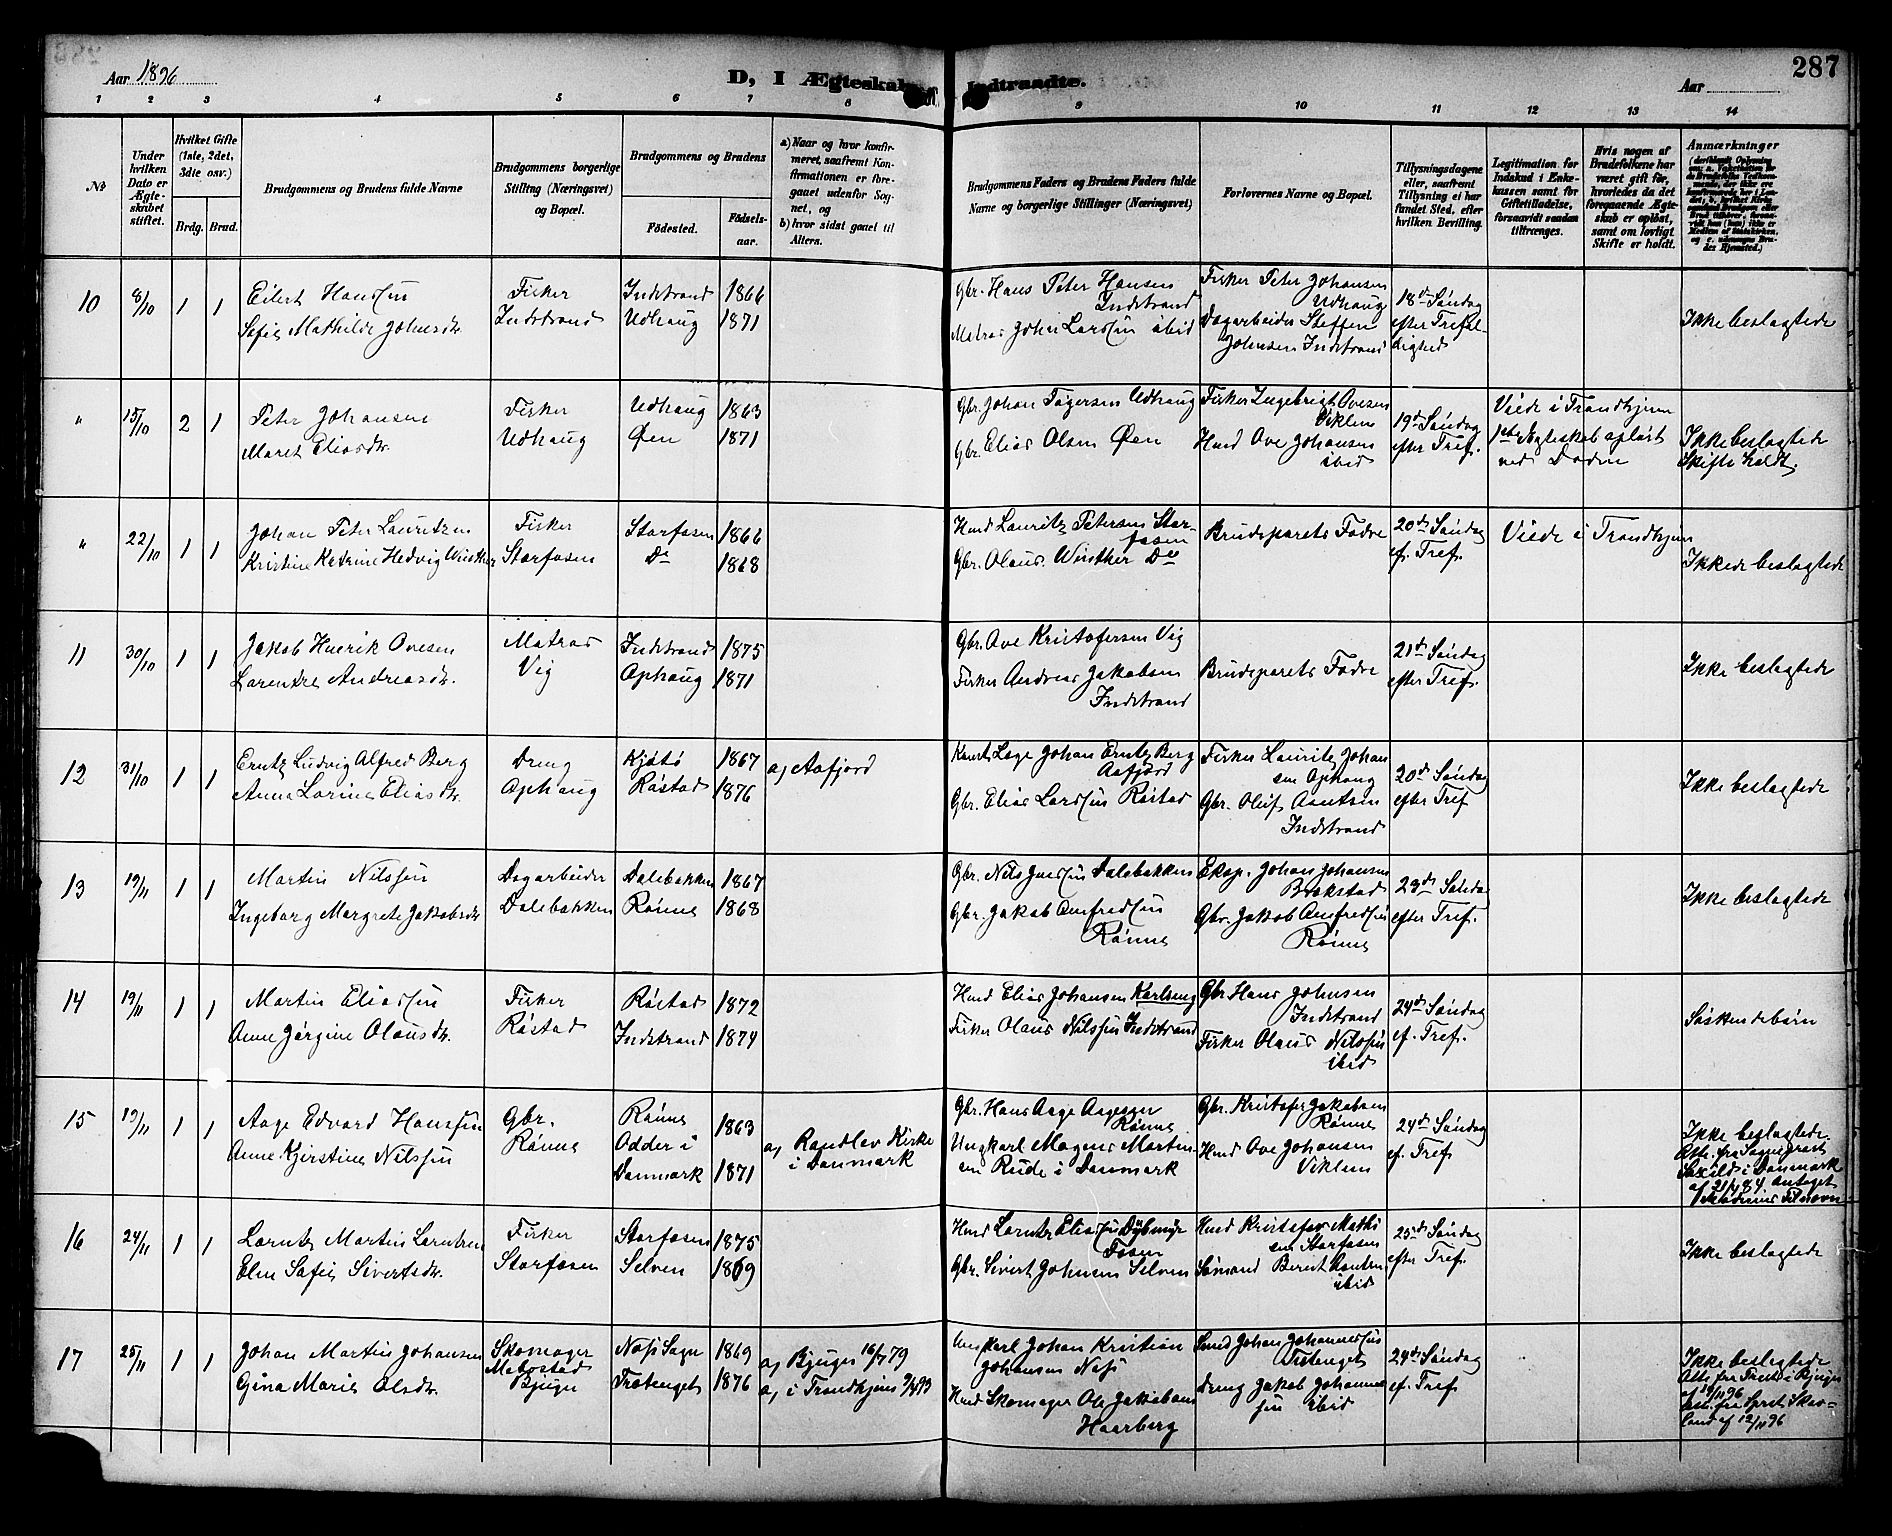 Aar 1896
D, I Ægteskab Indtraadte.
Aar
287
1 2 3 4 5 6 7 8 9 10 11 12 13 14
No
Under hvilken Dato er Ægteskabet stiftet.
Hvilket Gifte (1ste, 2det, 3die osv.)
Brdg. Brud.
Brudgommens og Brudens fulde Navne
Brudgommens borgerlige Stilling (Næringsvei) og Bopæl.
Brudgommens og Brudens
Fødested.
Fødselsaar.
a) Naar og hvor konfirmeret, saafremt Konfirmationen er foregaaet udenfor Sognet, og
b) hvor sidst gaaet til Alters.
Brudgommens Faders og Brudens Faders fulde Navne og borgerlige Stillinger (Næringsvei)
Forlovernes Navne og Bopæl.
Tillysningsdagene eller, saafremt Tillysning ei har fundet Sted, efter hvilken Bevilling.
Legitimation for Indskud i Enkekassen samt for Giftetilladelse, forsaavidt saadan tiltrænges.
Hvis nogen af Brudefolkene har været gift før, hvorledes da det foregaaende Ægteskab er opløst, samt om lovligt Skifte er holdt.
Anmærkninger
10 8/10 1 1
Eilert Hanssen
Sofie Mathilde Johnsdr.
Fisker
Indstrand
Indstrand 1866
Udhaug 1871
Gbr. Hans Peter Hansen
Indstrand
Matros John Larssen ibid
Fisker Peter Johansen
Udhaug
Dagarbeider Steffen
Johnsen Indstrand
18de Søndag
efter Trefoldighed
Ikke beslægtede
" 15/10 2 1
Peter Johansen
Maret Eliasdr.
Fisker
Udhaug
Udhaug 1863
Øen 1871
Gbr. Johan Udhaug
Gbr. Elias Olsen Øen
Fisker Ingebrigt Ovesen
Viklem
Hmd Ove Johansen
ibid
19de Søndag
efter Tref.
Viede i Trondhjem
1ste Ægteskab opløst
ved Døden
Ikke beslægtede
Skifte holdt.
" 22/10 1 1
Johan Peter Lauritzen
Kristine Katrine Hedvig Winther
Fisker
Storfosen
Storfosen 1866
Do 1868
Hmd Lauritz Petersen Storfosen
Gbr. Olaus Winther Do
Brudeparets Fædre
20de Søndag
ef. Tref.
Viede i Trondhjem
Ikke beslægtede
11 30/10 1 1
Jakob Henrik Ovesen
Lorentze Andreasdr.
Matros
Vig
Indstrand 1875
Ophaug 1871
Gbr. Ove Kristofersen Vig
Fisker Andreas Jakobsen
Indstrand
Brudeparets Fædre
21de Søndag
efter Tref.
Ikke beslægtede
12 31/10 1 1
Erntz Ludvig Alfred Berg
Anna Lorine Eliasdr.
Dreng
Ophaug
Kjøtø 1867
Røstad 1876
a) Aafjord
Johan Erntz Berg
Aafjord
Gbr. Elias Larssen Røstad
Fisker Lauritz Johansen Ophaug
Gbr. Oluf Arntsen
Indstrand
20de Søndag
efter Tref
Ikke beslægtede
13 19/11 1 1
Martin Nilssen
Ingeborg Margrete Jakobsdr.
Dagarbeider
Dalebakken
Dalebakken 1867
Rønne 1868
Gbr. Nils Dalebakken
Gbr. Jakob Amfredsen
Rønne
Eksp. Johan Johansen
Brekstad
Gbr. Jakob Amfredsen
Rønne
23de Søndag
efter Tref.
Ikke beslægtede
14 19/11 1 1
Martin Eliassen
Anne Jørgine Olausdr.
Fisker
Røstad
Røstad 1872
Indstrand 1874
Hmd Elias Johansen Karlseng
Fisker Olaus Nilssen Indstrand
Gbr Hans Johnsen
Indstrand
Fisker Olaus Nilssen
ibid
24de Søndag
ef. Tref.
Søskendebørn
15 19/11 1 1
Aage Edvard Hanssen
Anne Kjerstine Nilssen
Gbr.
Rønne
Rønne 1863
Odder i
Danmark 1871
a) Randlev Kirke
i Danmark
Gbr. Hans Aage Aagesen
Rønne
Ungkarl Magnus Martinsen Rude i Danmark
Gbr. Kristofer Jakobsen
Rønne
Hmd Ove Johansen
Viklem
24de Søndag
ef. Tref
Ikke beslægtede.
Att. fra Sogneprest
i Danmark
af 21/7 84 antaget
16 24/11 1 1
Lorntz Martin Lorntzen
Elen Sofie Sivertsdr.
Fisker
Storfosen
Storfosen 1875
Selven 1869
Hmd Lorntz Eliassen
Fosen
Gbr. Sivert Johnsen Selven
Hmd Kristofer Mathisen Storfosen
Sømand Berent
ibid
25de Søndag
efter Tref.
Ikke beslægtede
17 25/11 1 1
Johan Martin Johansen
Gina Marie Olsdr.
Skomager
Bjugn
Næs Sogn 1869
Trætenget 1876
a) Bjugn 79
a) i Trondhjem 93
Ungkarl Johan Kristian
Johansen Næs
Hmd Skomager Ole Jakobsen
Haarberg
Smed Johan Johannessen
Trætenget
Dreng Jakob Johannessen ibid
24de Søndag
ef. Tref
Ikke beslægtede
Att. fra i Bjugn
af 96
af 12/11 96